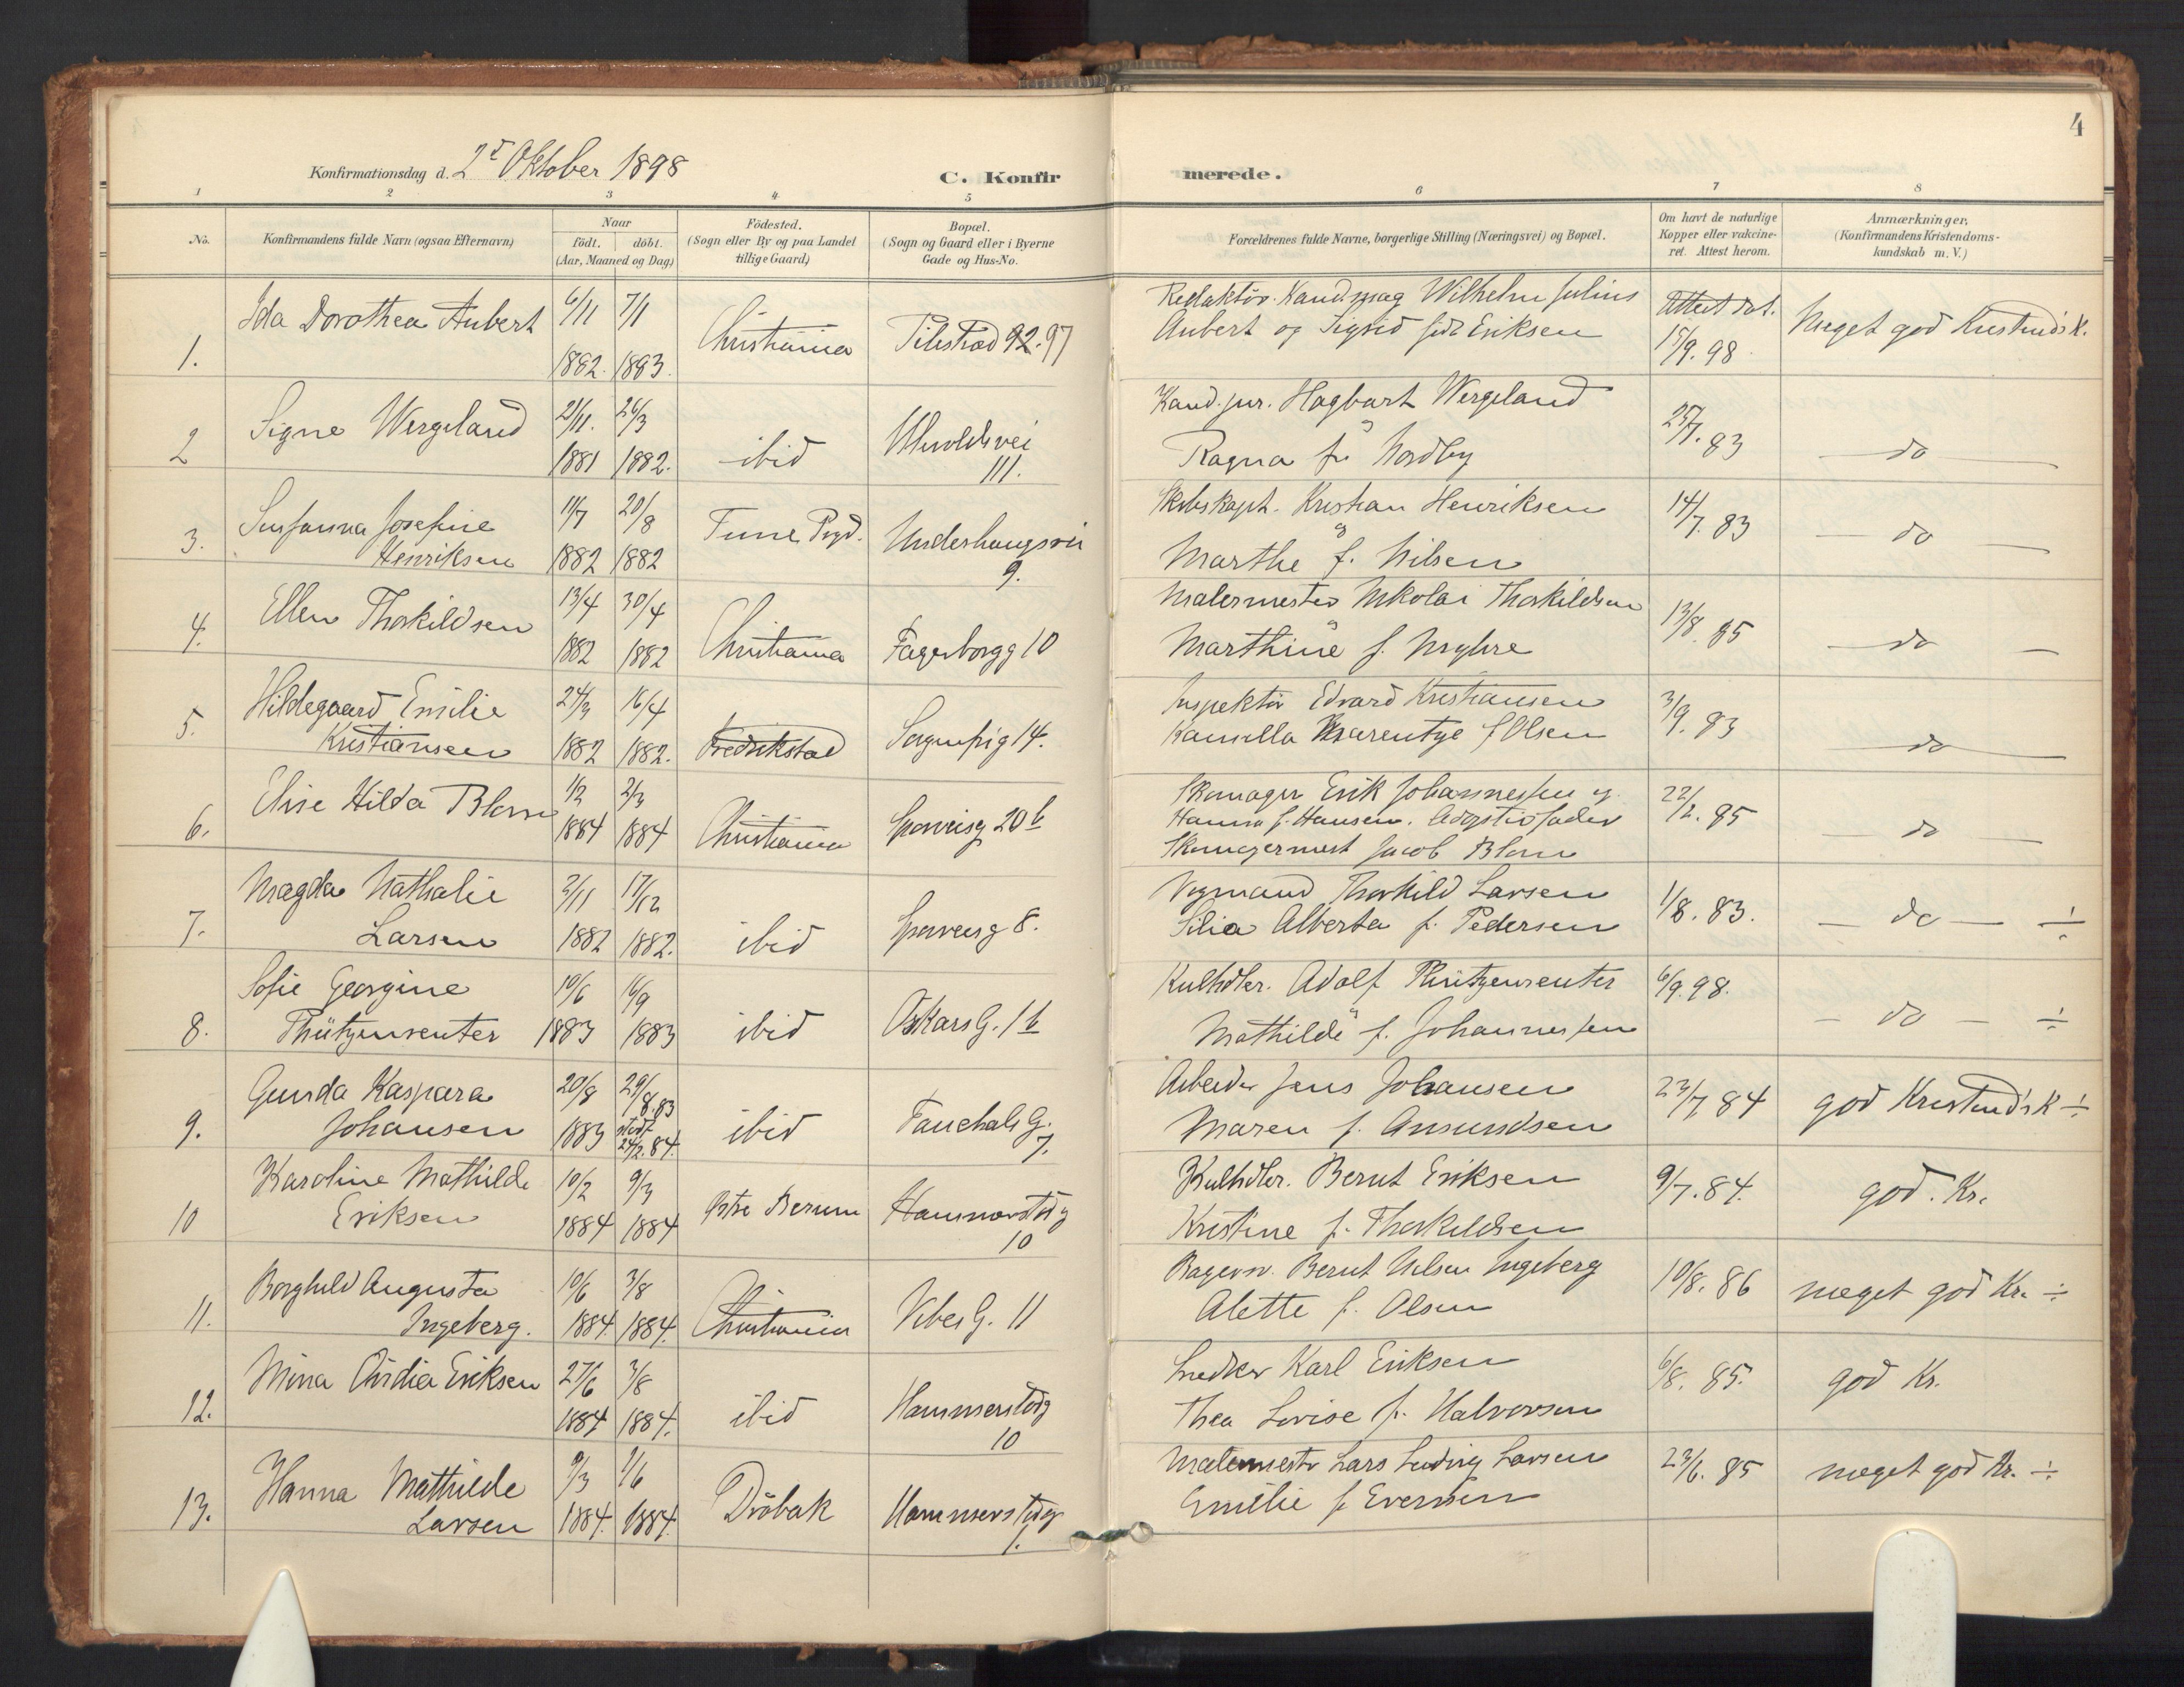 4
Konfirmationsdag d. 2d Oktober 1898
C. Konfirmerede.
1 2 3 4 5 6 7 8
No.
Konfirmandens fulde Navn (ogsaa Efternavn)
Naar
födt. döbt.
(Aar, Maaned og Dag)
Födested.
(Sogn eller By og paa Landet
tillige Gaard)
Bopæl.
(Sogn og Gaard eller i Byerne
Gade og Hus-No.
Forældrenes fulde Navne, borgerlige Stilling (Næringsvei) og Bopæl.
Om havt de naturlige
Kopper eller vakcine-
ret. Attest herom.
Anmærkninger,
(Konfirmandens Kristendoms-
kundskab m. V.)
1.
Ida Dorothea Aubert
6/11 1882. 7/1 1883.
Christiania
Pilestræd 92.97
Redaktör. Kand. mag Wilhelm Julius
Aubert og Sigrid född Eriksen
Attest dat.
15/9. 98
Meget god Kristendsk.
2
Signe Wergeland
21/11. 1881 26/3 1882.
ibid
Ullevoldsvei
111.
Kand. jur. Hagbart Wergeland
og
Ragna f. Nordby
25/7. 83
do
3.
Susanna Josefine
Henriksen
11/7 1882 20/8 1882
Tune Prgd.
Underhaugsvei
9.
Skibskapt. Kristian Henriksen
og
Marthe f. Nilsen
14/7. 83
do
4.
Ellen Thorkildsen
13/4 1882 30/4 1882
Christiania
Fagerborgg 10
Malermester Nikolai Thorkildsen
og
Marthine f. Myhre
13/8. 85
do
5.
Hildegaard Emilie
Kristiansen
24/3 1882 16/4 1882.
Fredrikstad
Sognsfrig 14.
Inspektör Edvard Kristiansen
Kamilla Marentze f Olsen
3/9. 83
do
6.
Elise Hilda Blom
1884 2/3 1884
Christiania
Sporveisg 20 b
Skomager Erik Johannessen og
Hanna f. Hansen. Adoptivfader
Skomagermest Jacob Blom
22/2. 95
do
7.
Magda Nathalie
Larsen
2/11 1882 17/12 1882.
ibid
Sporveisg 8.
Vognmand Thorkild Larsen
Silia Alberta f. Pedersen
1/8. 83.
do ÷
8.
Sofie Georgine
Thützenreuter
10/6 1883 16/9 1883
ibid
Oskars G. 1 b
Kulhdler. Adolf Thützenreuter
Mathilde f. Johannessen
6/9. 98.
do ÷
9.
Gunda Kaspara
Johansen
20/8 1883 29/8. 83
stadf. 24/2. 84.
ibid
Fauchals G.
7.
Arbeider Jens Johansen
Maren f. Amundsen
23/7 84
god Kristendsk ÷
10
Karoline Mathilde
Eriksen
10/2 1884 9/3 1884
Østre Berum
Hammerstdg
10
Kulhdler. Bernt Eriksen
Kristine f. Thorkildsen
9/7. 84.
god. Kr.
11.
Borghild Augusta
Ingeberg.
10/6 1884. 3/8 1884.
Christiania
Vibes G. 11
Bagersv. Bernt Nelsen Ingeberg
Alette f. Olsen
10/8. 86
meget god Kr. ÷
12.
Mina Ovidia Eriksen
27/6 1884 3/8 1884.
ibid
Hammerstadg
10
Snedker Karl Eriksen
Thea Lovise f. Halvorsen
6/8. 85.
god Kr.
13.
Hanna Mathilde
Larsen
9/3 1884. 1/6 1884.
Dröbak
Hammerstadg
1.
Malermestr Lars Ludvig Larsen
Emilie f Evensen
23/6. 85
meget god Kr. ÷